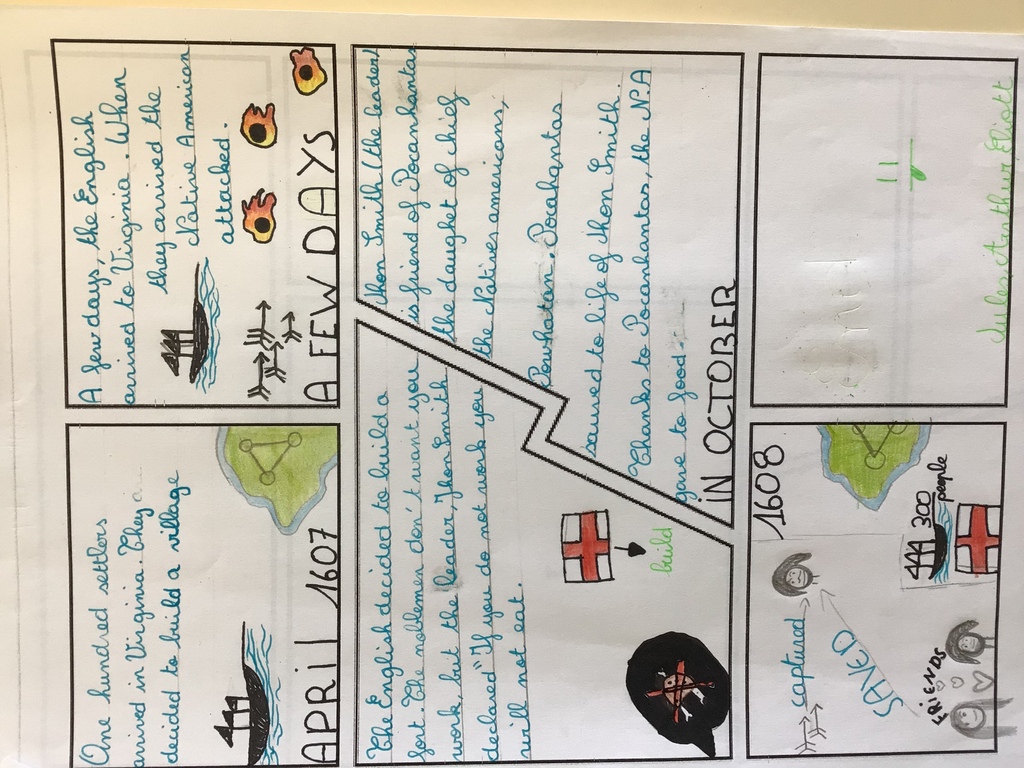 One hundred settlers
arrived in Virginia. They
decided to build a village
APRIL 1607
A few days, the English
arrived to Virginia. When
they arrived the
Native American
attacked.
A FEW DAYS
The English decided to build a
fort. The noblemen don't want you
work but the leader, Jhon Smith
declared "If you do not work you
will not eat.
build
Jhon Smith (the leader
is friend of Pocanhantas
the daught of chief
the Natives americans,
Powhatan. Pocahantas
saured to life of Jhon Smith.
Thanks to Pocanhantas, the N.A
gave to food.
IN OCTOBER
1608
captued
SAVED
FRIENDS
300
people
Jules Arthur Eliott